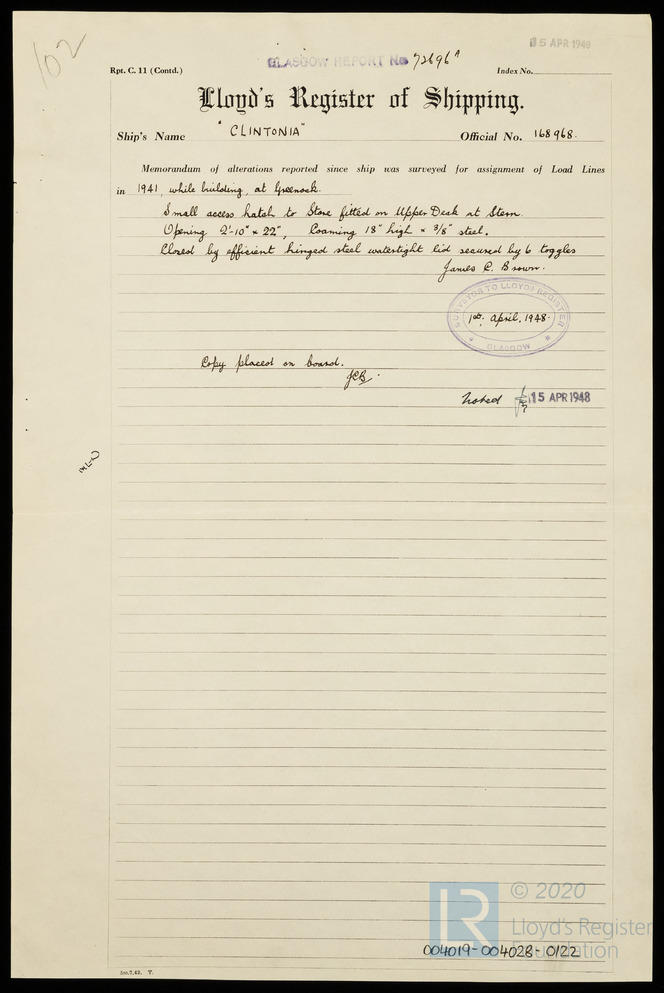 102
15 APR 1948
GLASGOW REPORT No 72696A
Rpt. C. 11 (Contd.)
Index No.
Lloyd's Register of Shipping.
Ship's Name "CLINTONIA"
Official No. 168968.
Memorandum of alterations reported since ship was surveyed for assignment of Load Lines
in 1941, while building, at Greenock.
Small access hatch to Store fitted on Upper Deck at Stern.
Opening 2'-10" × 22", Coaming 18" high × 3/8" steel.
Closed by efficient hinged steel watertight lid secured by 6 toggles
James C. Brown.
SURVEYOR TO LLOYD'S REGISTER
1st. April, 1948.
GLASGOW
Copy placed on board.
JCB.
Noted
15 APR 1948
© 2020
LR
Lloyd's Register
Foundation
004019-004028-0122